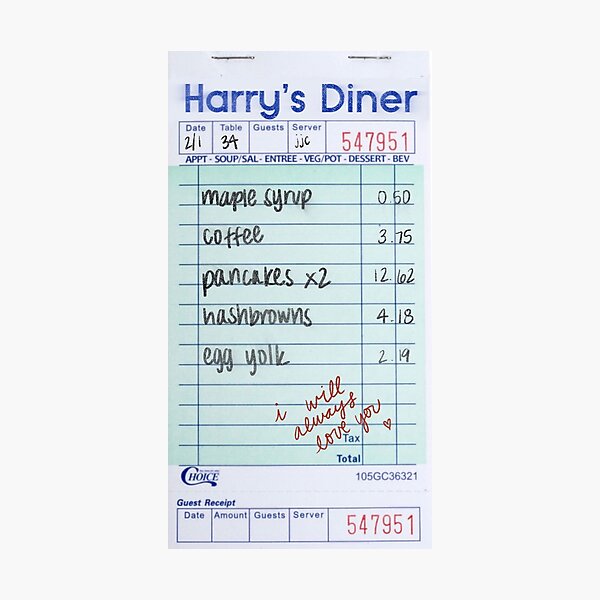 Harry's Diner
Date Table Guests Server
2/1 34 jjc 547951
APPT - SOUP/SAL - ENTREE - VEG/POT - DESSERT - BEV
maple syrup 0.50
coffee 3.75
pancakes x2 12.62
hashbrowns 4.18
egg yolk 2.19
i will
always
love you
Tax
Total
CHOICE 105GC36321
Guest Receipt
Date Amount Guests Server
547951